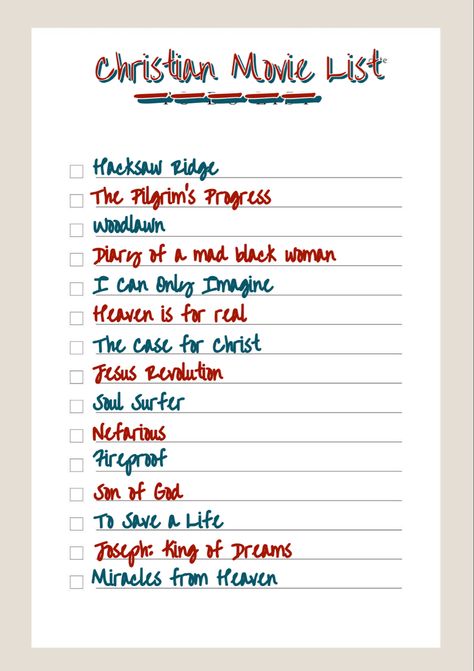 Christian Movie List
Hacksaw Ridge
The Pilgrim's Progress
Woodlawn
Diary of a mad black woman
I Can Only Imagine
Heaven is for real
The Case for Christ
Jesus Revolution
Soul Surfer
Nefarious
Fireproof
Son of God
To Save a Life
Joseph: King of Dreams
Miracles from Heaven